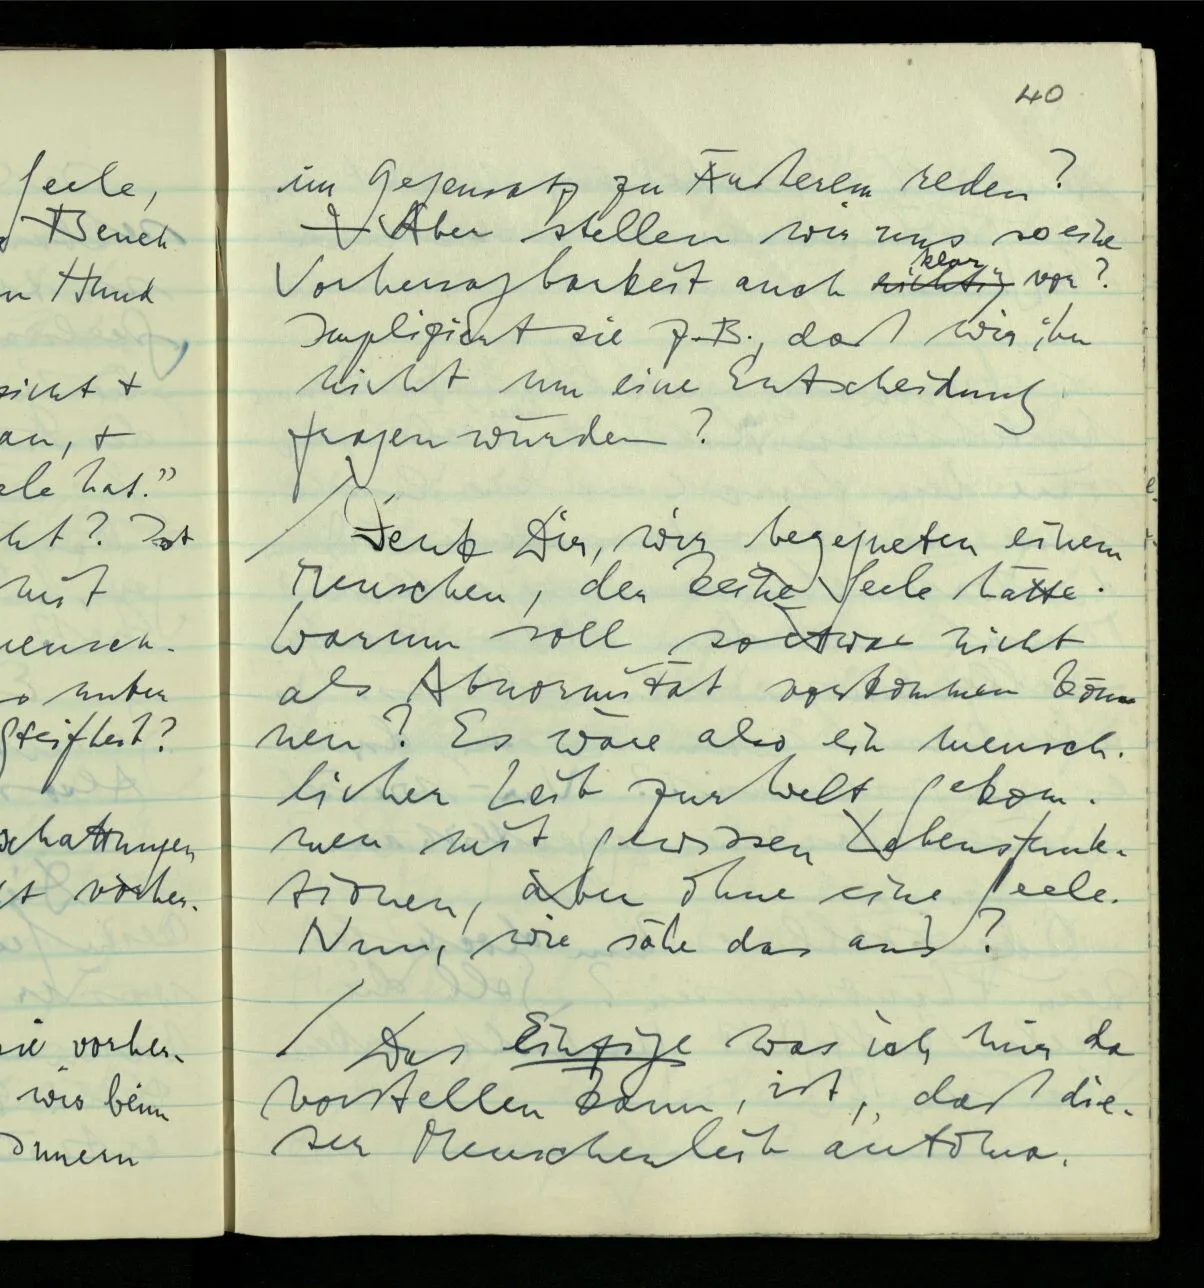 Seele,
Beneh
Hund
sieht +
an, +
ele hat."
ht? Ist
mit
mensch-
so unter
Steifheit?
schattungen
vorher-
sie vorher-
wir beim
Innern
40
im Gegensatz zu Äusserem reden?
Aber stellen wir uns so eine
Vorhersagbarkeit auch richtig klar vor?
Impliziert sie z.B., dass wir ihn
nicht um eine Entscheidung
fragen würden?
/ Denk Dir, wir begegneten einem
Menschen, der keine Seele hätte.
Warum soll so etwas nicht
als Abnormität vorkommen kön
nen? Es wäre also ein mensch-
licher Leib zur Welt gekom-
men mit gewissen Lebensfunk-
tionen, aber ohne eine Seele.
Nun, wie sähe das aus?
/ Das Einzige was ich mir da
vorstellen kann, ist, dass die-
ser Menschenleib automa-